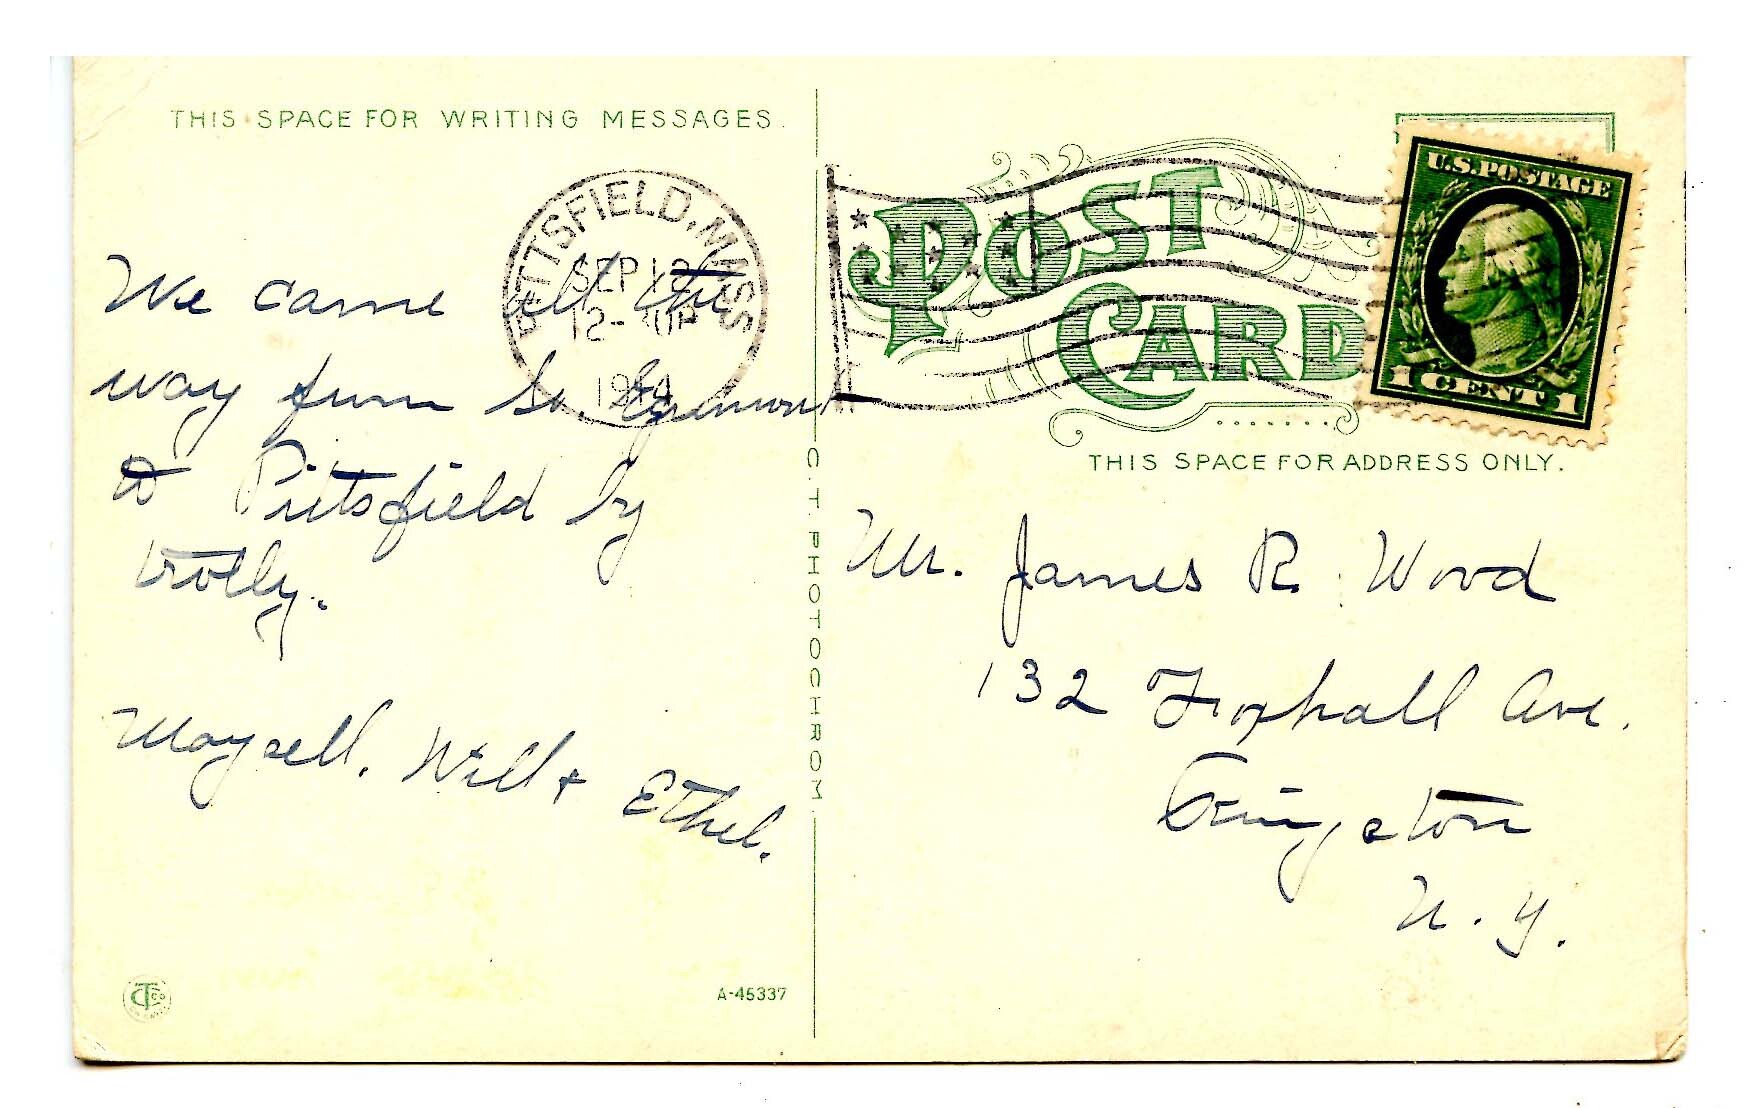 THIS SPACE FOR WRITING MESSAGES.
PITTSFIELD, MASS
SEP 12
12-
We came all the
way from So. Egremont
to Pittsfield by
trolly.
Maysell. Will & Ethel.
C. T. PHOTOCHROM
A-45337
CT CO
U.S. POSTAGE
1 CENT 1
POST
CARD
THIS SPACE FOR ADDRESS ONLY.
Mr. James R. Wood
132 Foxhall Ave.
Kingston
N. Y.